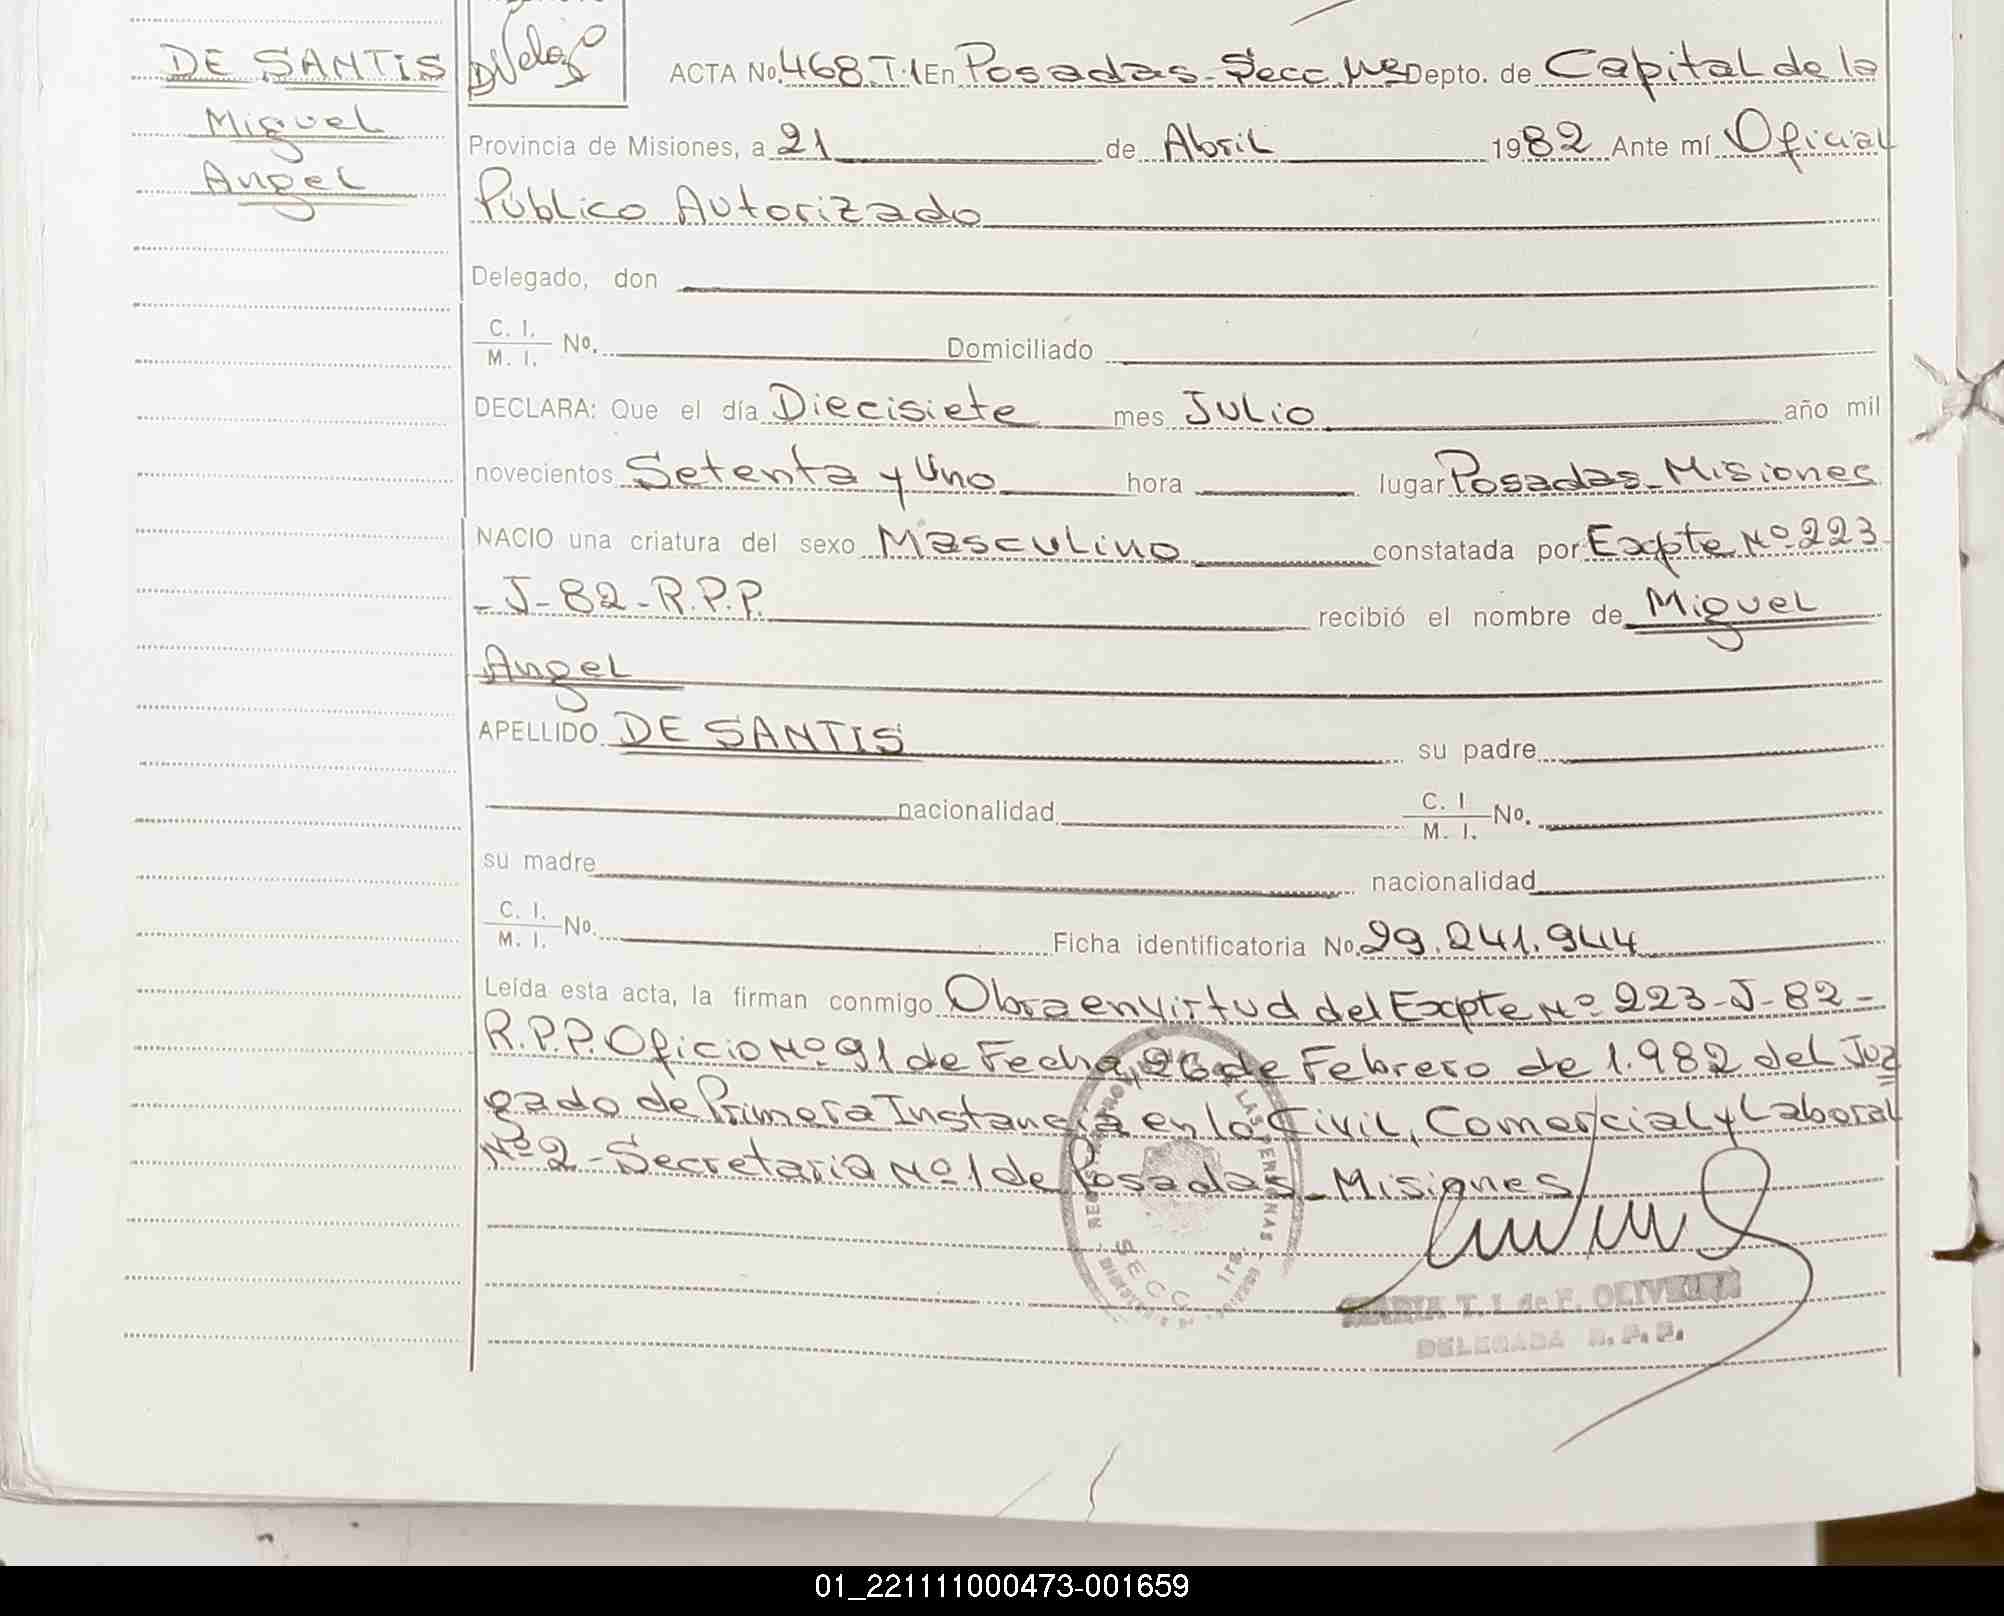 DE SANTIS
Miguel
Angel
DVelazo
ACTA No. 468 T.1 En Posadas - Secc. 1ra Depto. de Capital de la
Provincia de Misiones, a 21 de Abril 1982 Ante mí Oficial
Público Autorizado
Delegado, don
C. I.
M. I. No. Domiciliado
DECLARA: Que el día Diecisiete mes Julio año mil
novecientos Setenta y Uno hora lugar Posadas - Misiones
NACIO una criatura del sexo Masculino constatada por Expte Nº 223
- J - 82 - R.P.P. recibió el nombre de Miguel
Angel
APELLIDO DE SANTIS su padre
nacionalidad C. I
M. I. No.
su madre nacionalidad
C. I.
M. I. No. Ficha identificatoria No. 29.241.944
Leída esta acta, la firman conmigo Obra en virtud del Expte Nº 223 - J - 82 -
R.P.P. Oficio Nº 91 de Fecha, 26 de Febrero de 1.982 del Juz
gado de Primera Instancia en lo Civil, Comercial y Laboral
Nº 2 - Secretaria Nº 1 de Posadas - Misiones
LAS PERSONAS
SECC. 1ra.
MARIA T. I. de F. OLIVEIRA
DELEGADA R. P. P.
01_221111000473-001659